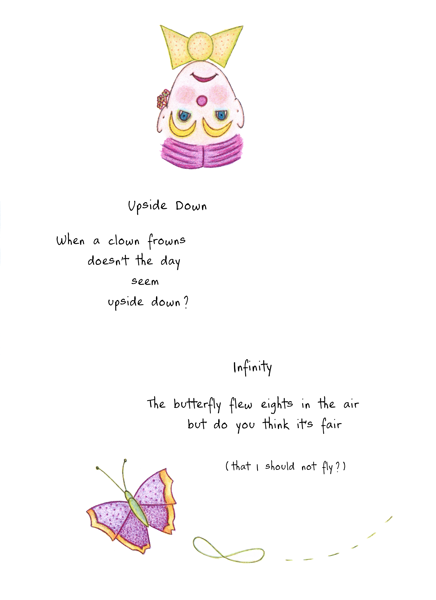 Upside Down
When a clown frowns
doesn't the day
seem
upside down?
Infinity
The butterfly flew eights in the air
but do you think it's fair
(that I should not fly?)